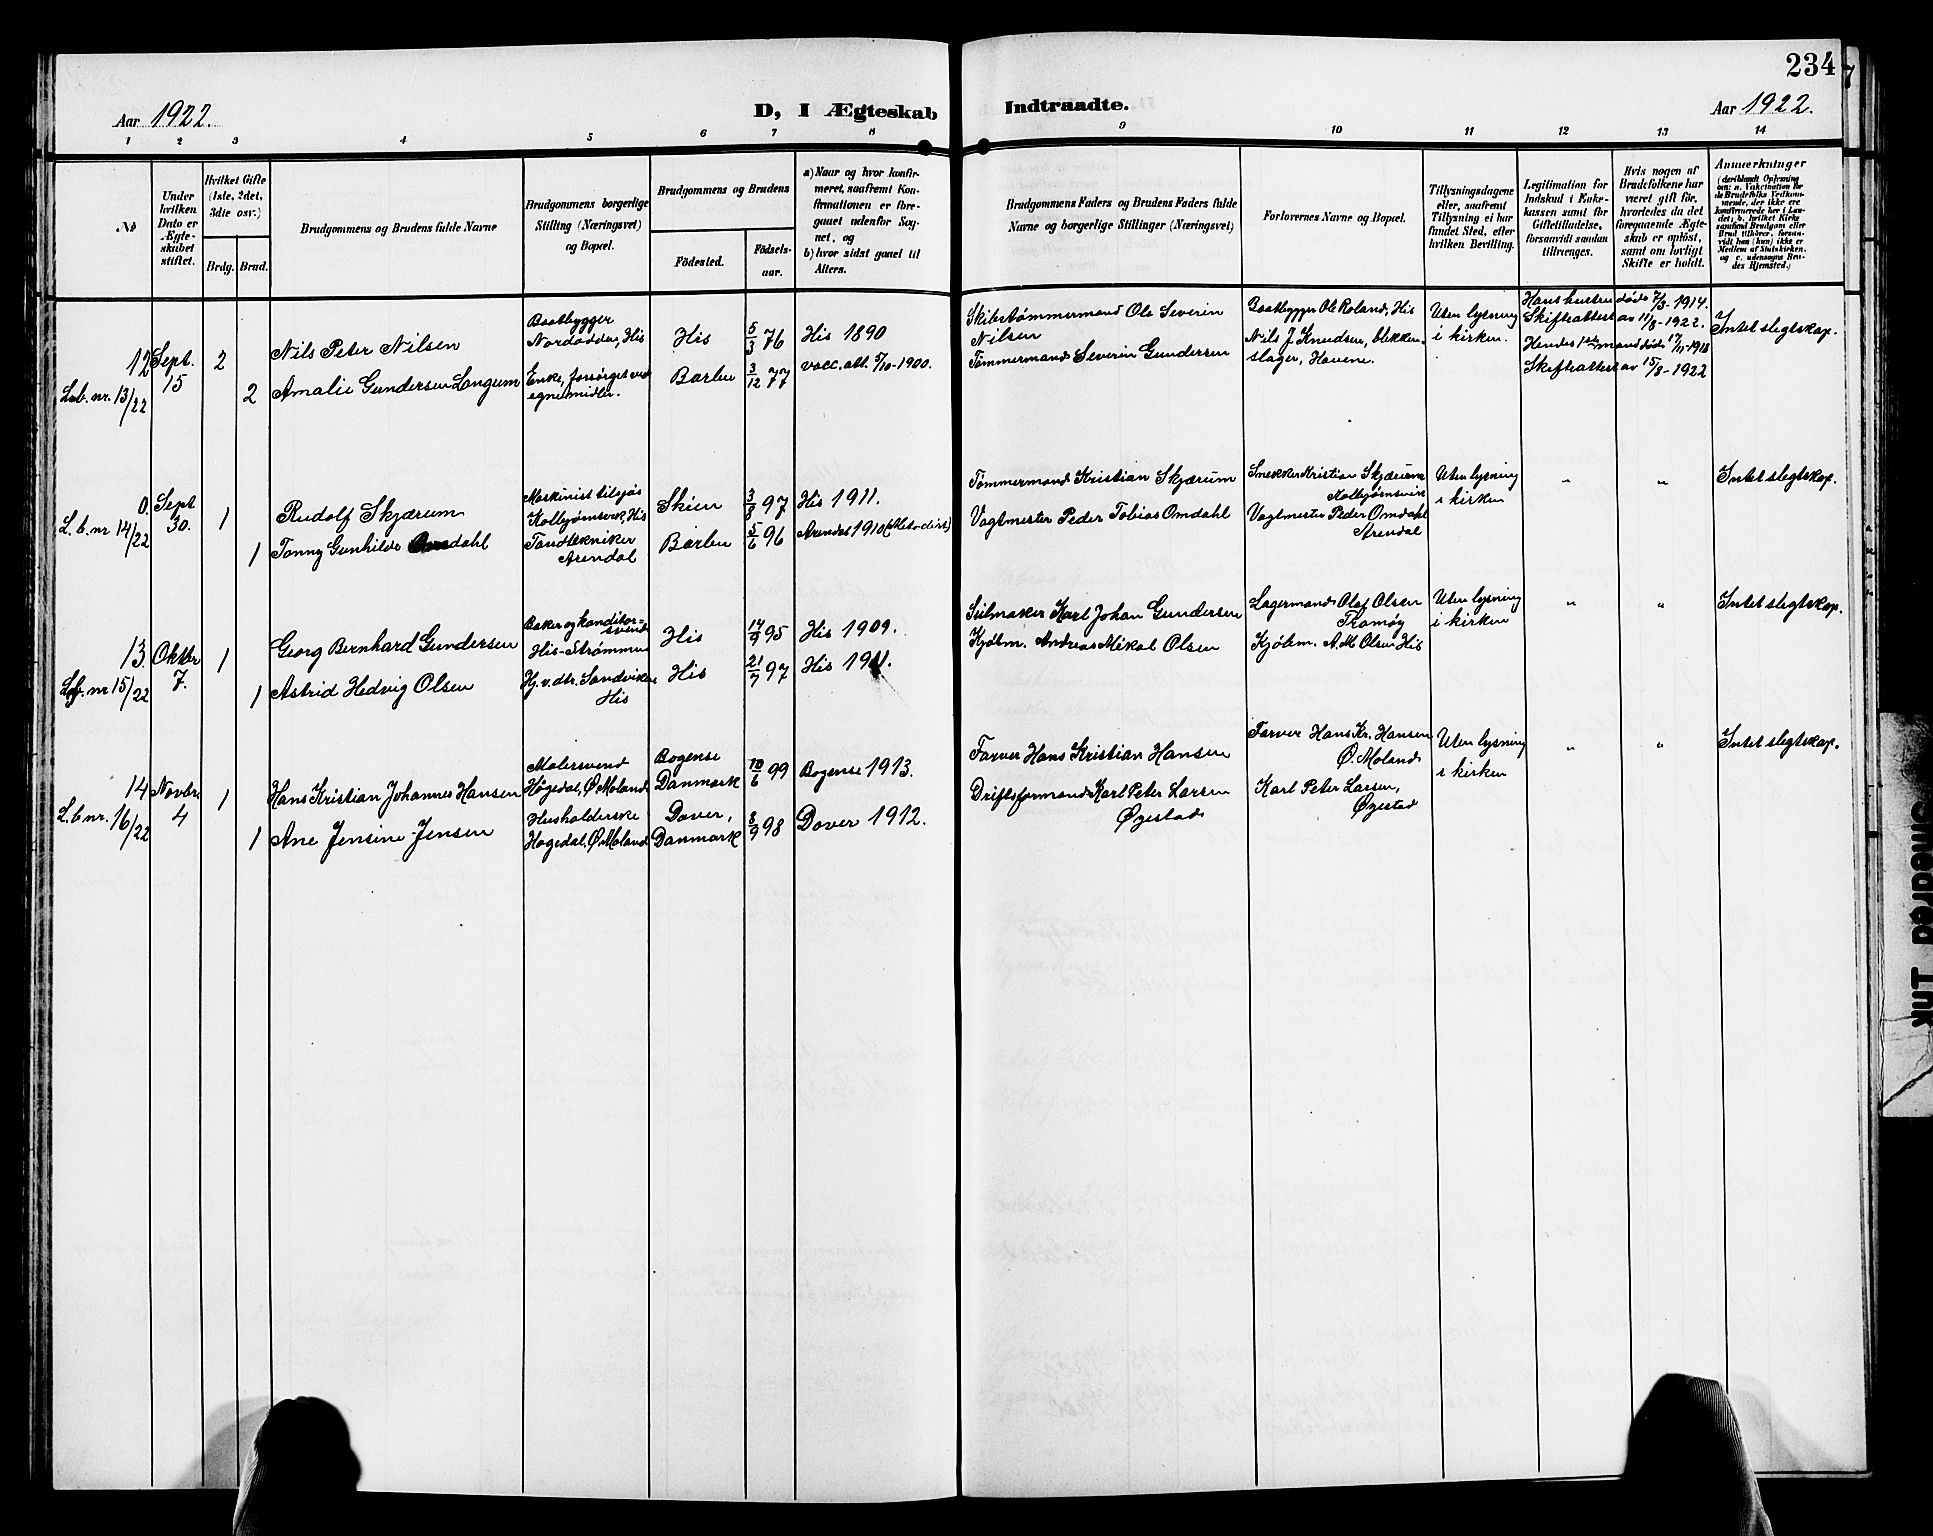 234
Aar 1922.
D, I Ægteskab Indtraadte.
Aar 1922.
1 2 3 4 5 6 7 8 9 10 11 12 13 14
№
Under hvilken Dato er Ægteskabet stiftet.
Hvilket Gifte (1ste, 2det, 3die osv.)
Brdg. Brud.
Brudgommens og Brudens fulde Navne
Brudgommens borgerlige Stilling (Næringsvei) og Bopæl.
Brudgommens og Brudens
Födested.
Födselsaar.
a) Naar og hvor konfirmeret, saafremt Konfirmationen er foregaaet udenfor Sognet, og
b) hvor sidst gaaet til Alters.
Brudgommens Faders og Brudens Faders fulde Navne og borgerlige Stillinger (Næringsvei)
Forlovernes Navne og Bopæl.
Tillysningsdagene eller, saafremt Tillysning ei har fundet Sted, efter hvilken Bevilling.
Legitimation for Indskud i Enkekassen samt for Giftetilladelse, forsaavidt saadan tiltrænges.
Hvis nogen af Brudefolkene har været gift för, hvorledes da det foregaaende Ægteskab er oplöst, samt om lovligt Skifte er holdt.
Anmerkninger
(deriblandt Oplysning om: a. Vakcination for de Brudefolks Vedkommende, der ikke ere konfirmerede her i Landet; b. hvilket Kirkesamfund Brudgom eller Brud tilhörer, forsaavidt han (hun) ikke er Medlem af Statskirken, og c. udensogns Brudes Hjemsted.)
12
L.b. nr. 13/22
Sept. 15
2
Nils Peter Nilsen
Baatbygger
Nordodden, His
His
5/3 76
His 1890
2
Amalie Gundersen Langum
Enke, forsørget ved
egne midler.
Barbu
3/12 77
vacc. att. 5/10 - 1900.
Skibstømmermand Ole Severin
Nilsen
Tømmermand Severin Gundersen
Baatbygger Ole Roland, His
Nils J. Knudsen, blikken-
slager, Havene.
Uten lysning
i kirken.
Hans hustru døde 7/3 - 1914.
Skifteattest av 11/8 - 1922.
Hendes 1ste mand døde 17/11-1918
Skifteattest av 15/8 - 1922
Intet slegtskap.
0.
L. b. nr 14/22
Sept 30.
1
Rudolf Skjærum
Maskinist tilsjøs
Kolbjørnsvik, His
Skien
3/8 97
His 1911.
1
Tonny Gunhilde Omdahl
Tandtekniker
Arendal
Barbu
5/6 96
Arendal 1910 (Metodist)
Tømmermand Kristian Skjærum
Vagtmester Peder Tobias Omdahl
Snekker Kristian Skjærum
Kolbjørnsvik
Vagtmester Peder Omdahl
Arendal
Uten lysning
i kirken
" "
Intet slegtskap.
13.
L.b. nr 15/22
Oktbr 7.
1
Georg Bernhard Gundersen
Baker og konditor-
svend
His-Strømmen
His
14/9 95
His 1909.
1
Astrid Hedvig Olsen
Hj. v. dtr. Sandviken
His
His
21/7 97
His 1911.
Seilmaker Karl Johan Gundersen
Kjøbm. Andreas Mikal Olsen
Lagermand Olaf Olsen
Tromøy
Kjøbm. A.M. Olsen His
Uten lysning
i kirken
" "
Intet slegtskap.
14
L. b nr. 16/22
Novbr 4
1
Hans Kristian Johannes Hansen
Malersvend
Høgedal, Ø. Moland
Bogense
Danmark
10/6 99
Bogense 1913.
1
Ane Jensine Jensen
Husholderske
Høgedal, Ø. Moland
Dover,
Danmark
8/9 98
Dover 1912.
Farver Hans Kristian Hansen
Driftsformand Karl Peter Larsen
Øyestad
Farver Hans Kr. Hansen
Ø. Moland
Karl Peter Larsen,
Øyestad
Uten lysning
i kirken
" "
Intet slegtskap.